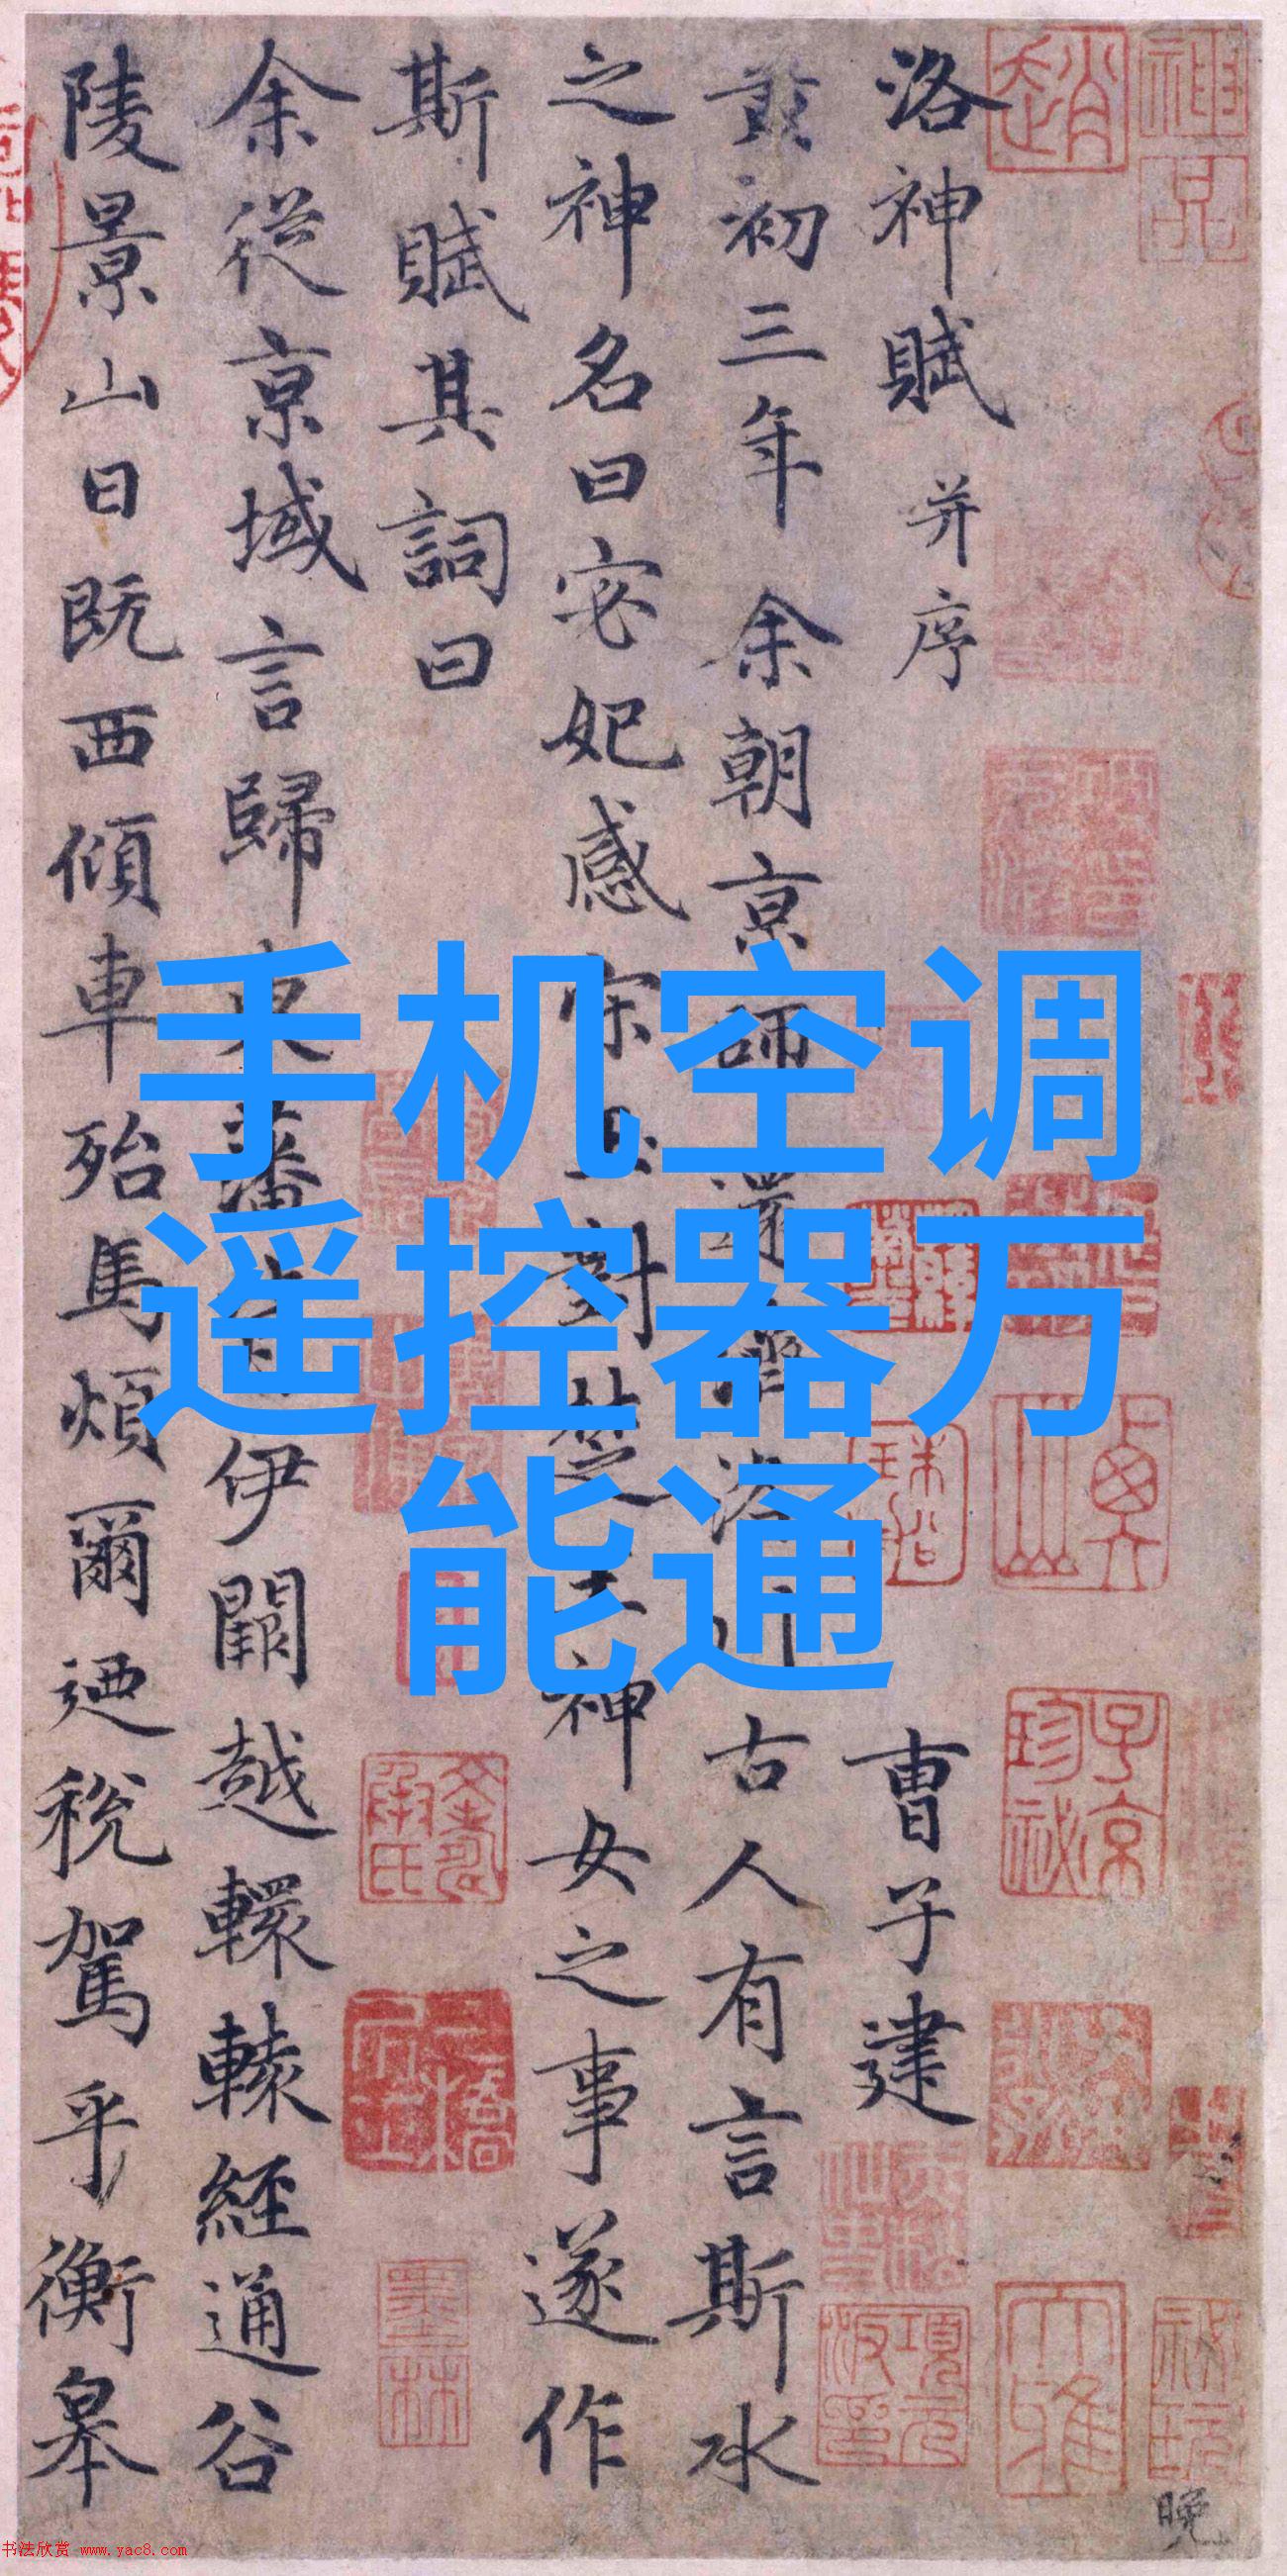 手机空调
遥控器万
能通
洛神賦 并序 曹子建
黄初三年余朝京師還濟洛川古人有言斯水
之神名曰宓妃感宋玉對楚王神女之事遂作
斯賦其詞曰
余從京域言歸東藩背伊闕越轘轅經通谷
陵景山日既西傾車殆馬煩爾迺稅駕乎衡皋
晚
趙
神品
子京珍祕
項元汴印
墨林
书法欣赏 www.yac8.com